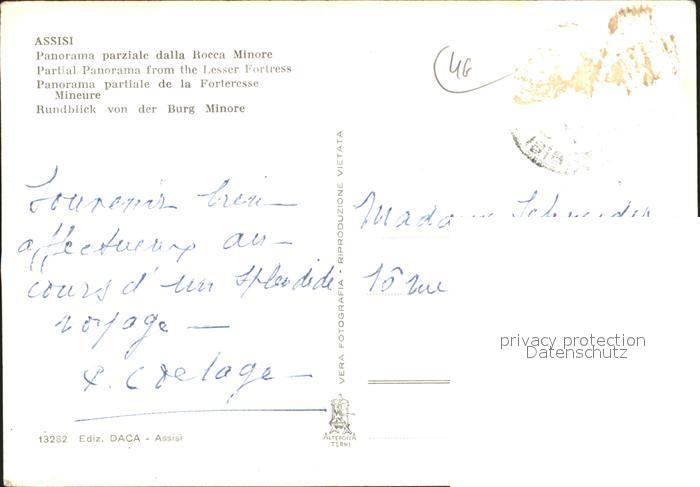 ASSISI
Panorama parziale dalla Rocca Minore
Partial Panorama from the Lesser Fortress
Panorama partiale de la Forteresse
Mineure
Rundblick von der Burg Minore
46
Souvenir bien
affectueux au
cours d'un splendide
voyage —
Delage
13282 Ediz. DACA - Assisi
VERA FOTOGRAFIA - RIPRODUZIONE VIETATA
ALTEROCCA
TERNI
Madame Schneider
15 rue
privacy protection
Datenschutz